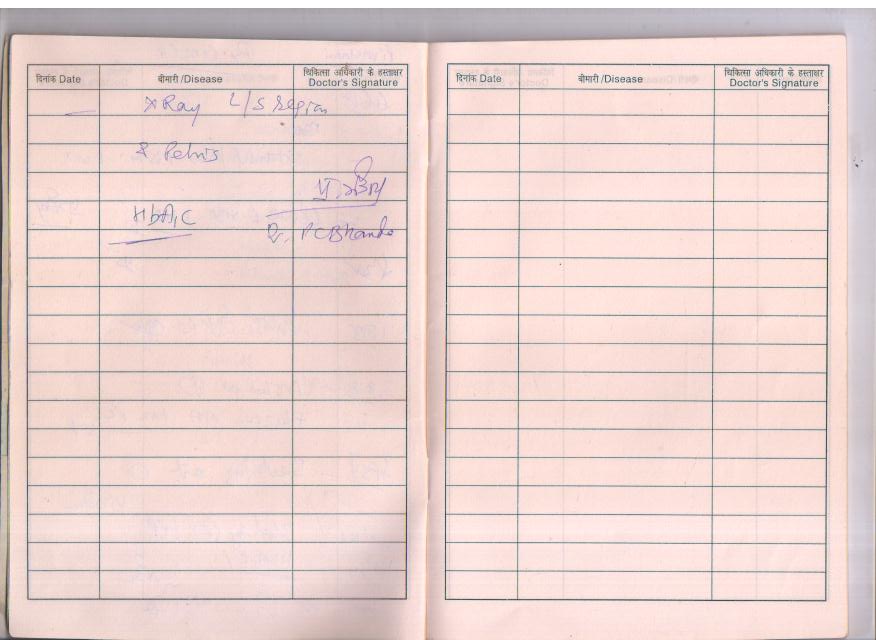 दिनांक Date बीमारी /Disease चिकित्सा अधिकारी के हस्ताक्षर
Doctor's Signature
X Ray L/S region
& Pelvis
HbA,C
Dr. PCBhande
दिनांक Date बीमारी /Disease चिकित्सा अधिकारी के हस्ताक्षर
Doctor's Signature